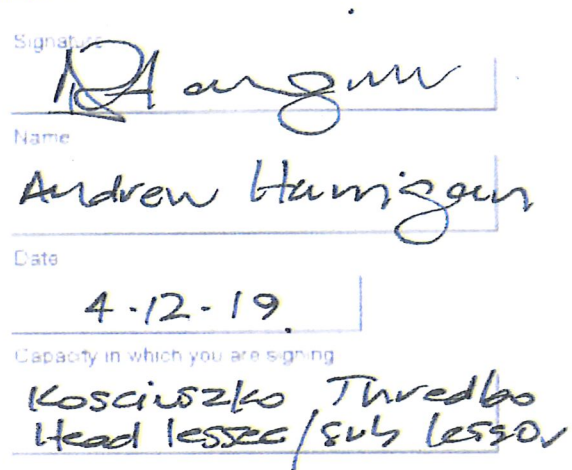 Signature
Name
Andrew Harrigan
Date
4.12.19
Capacity in which you are signing
Kosciuszko Thredbo
Head lessee/sub lessor